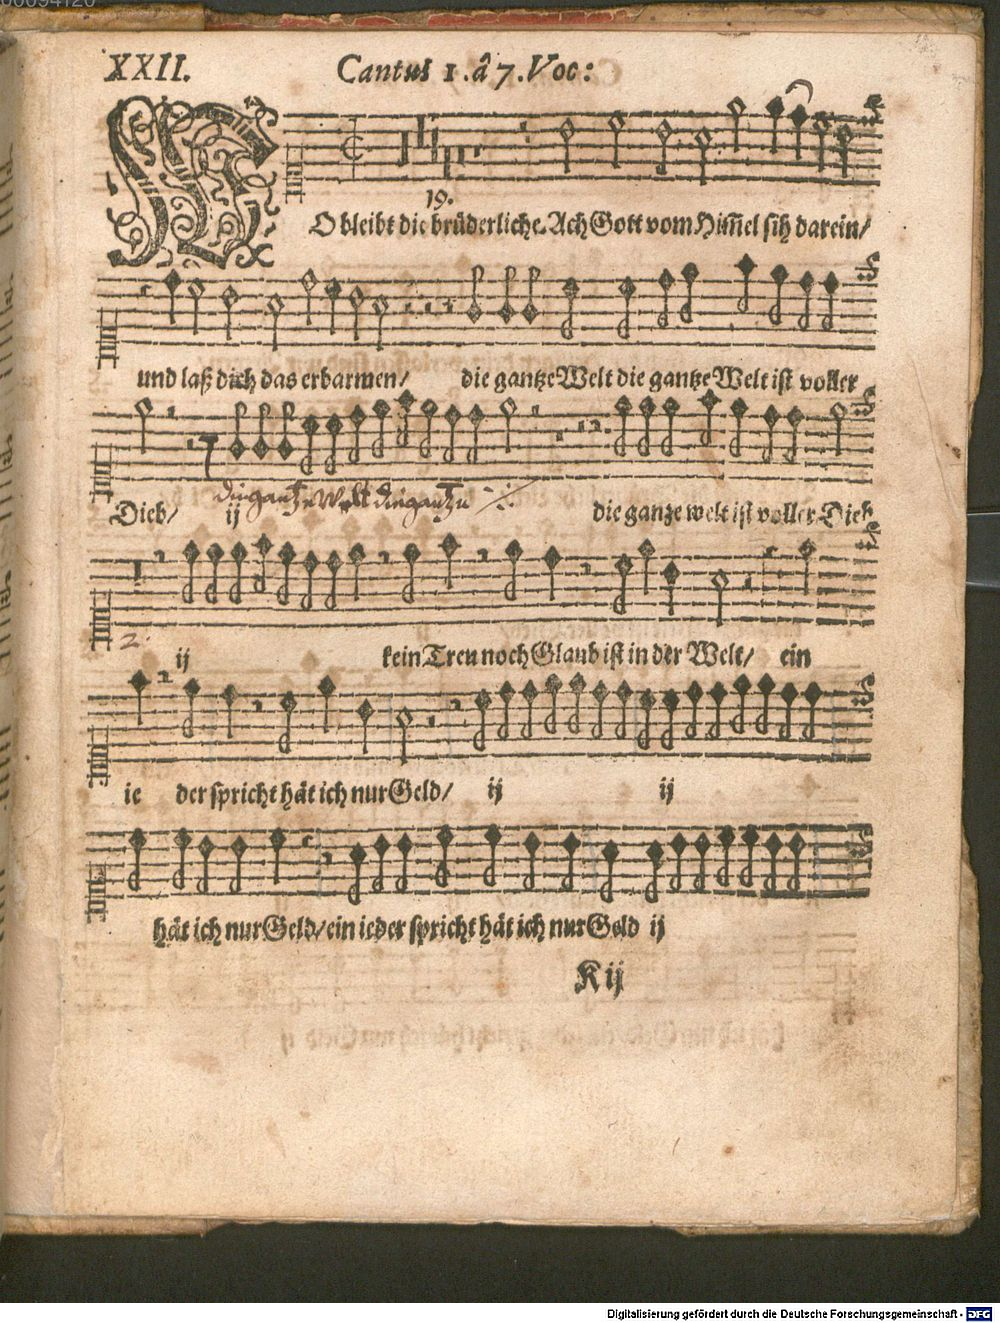 XXII. Cantus 1. â 7. Voc:
19.
WO bleibt die brüderliche. Ach Gott vom Him̃el sih darein/
und laß dich das erbarmen/ die gantze Welt die gantze Welt ist voller
die gantze Welt die gantze
Dieb/ ij die ganze welt ist voller Dieb
2.
ij kein Treu noch Glaub ist in der Welt/ ein
ie der spricht hät ich nur Geld/ ij ij
hät ich nur Geld/ ein ieder spricht hät ich nur Geld ij
K ij
Digitalisierung gefördert durch die Deutsche Forschungsgemeinschaft - DFG